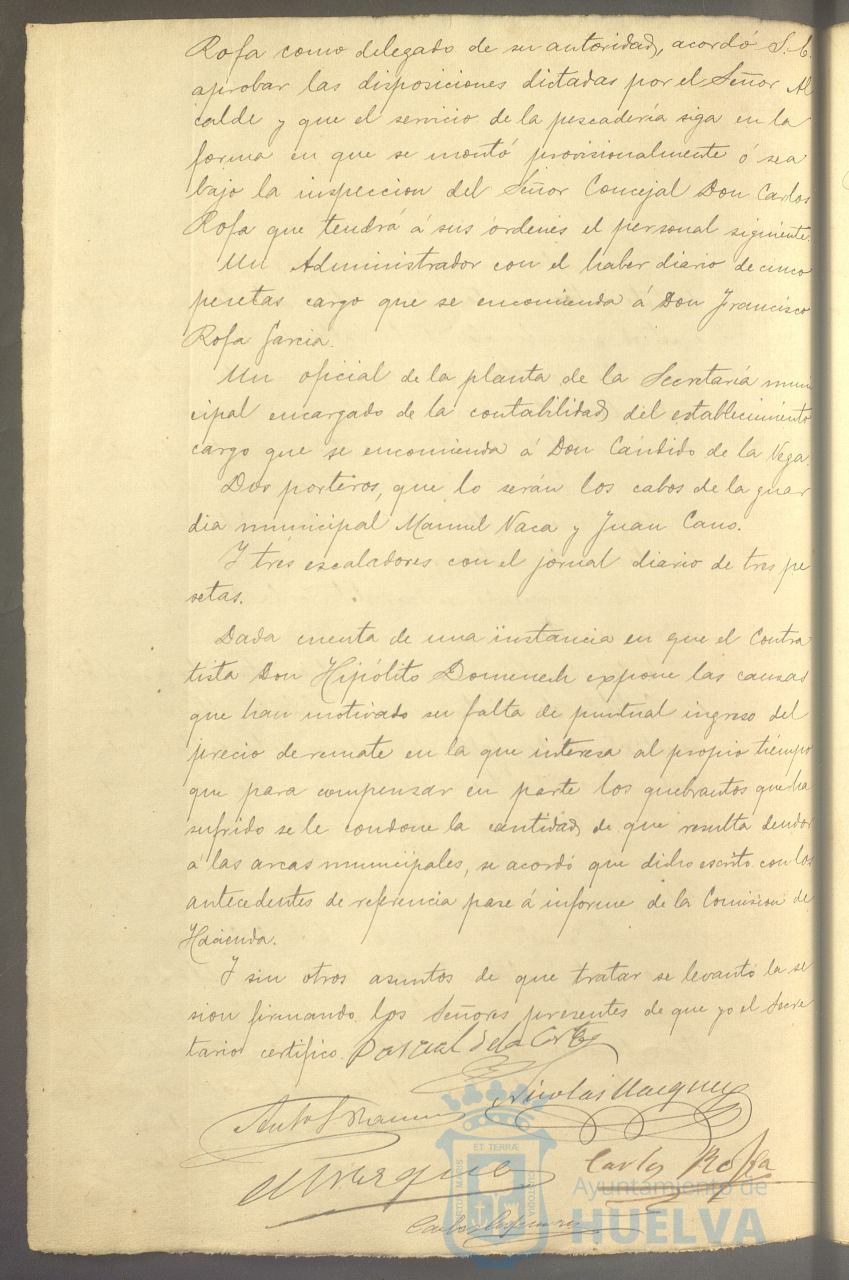 Rofa como delegado de su autoridad, acordó S. E.
aprobar las disposiciones dictadas por el Señor Al
calde y que el servicio de la pescadería siga en la
forma en que se montó provisionalmente ó sea
bajo la inspeccion del Señor Concejal Don Carlos
Rofa que tendrá á sus órdenes el personal siguiente.
Un Administrador con el haber diario de cinco
pesetas cargo que se encomienda á Don Francisco
Rofa Garcia.
Un oficial de la planta de la Secretaría muni
cipal encargado de la contabilidad del establecimiento
cargo que se encomienda á Don Cándido de la Vega.
Dos porteros, que lo serán los cabos de la guar
dia municipal Manuel Vaca y Juan Cano.
Y tres escaladores con el jornal diario de tres pe
setas.
Dada cuenta de una instancia en que el Contra
tista Don Hipólito Domenech expone las causas
que han motivado su falta de puntual ingreso del
precio de remate en la que interesa al propio tiempo
que para compensar en parte los quebrantos que ha
sufrido se le condone la cantidad de que resulta deudor
á las arcas municipales, se acordó que dicho escrito con los
antecedentes de referencia pase á informe de la Comision de
Hacienda.
Y sin otros asuntos de que tratar se levantó la se
sion firmando los Señores presentes de que yo el Secre
tario certifico.
Nicolás Vazquez
Carlos Rofa
ET TERRÆ
PORTUS MARIS
CUSTODIA
Ayuntamiento de
HUELVA